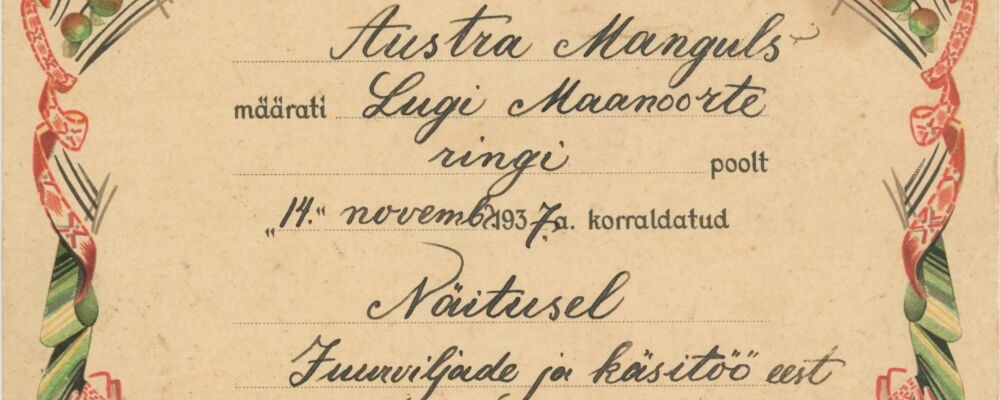 Austra Manguls
määrati Lugi Maanoorte
ringi poolt
„14." novemb. 1937. a. korraldatud
Näitusel
Juurviljade ja käsitöö eest